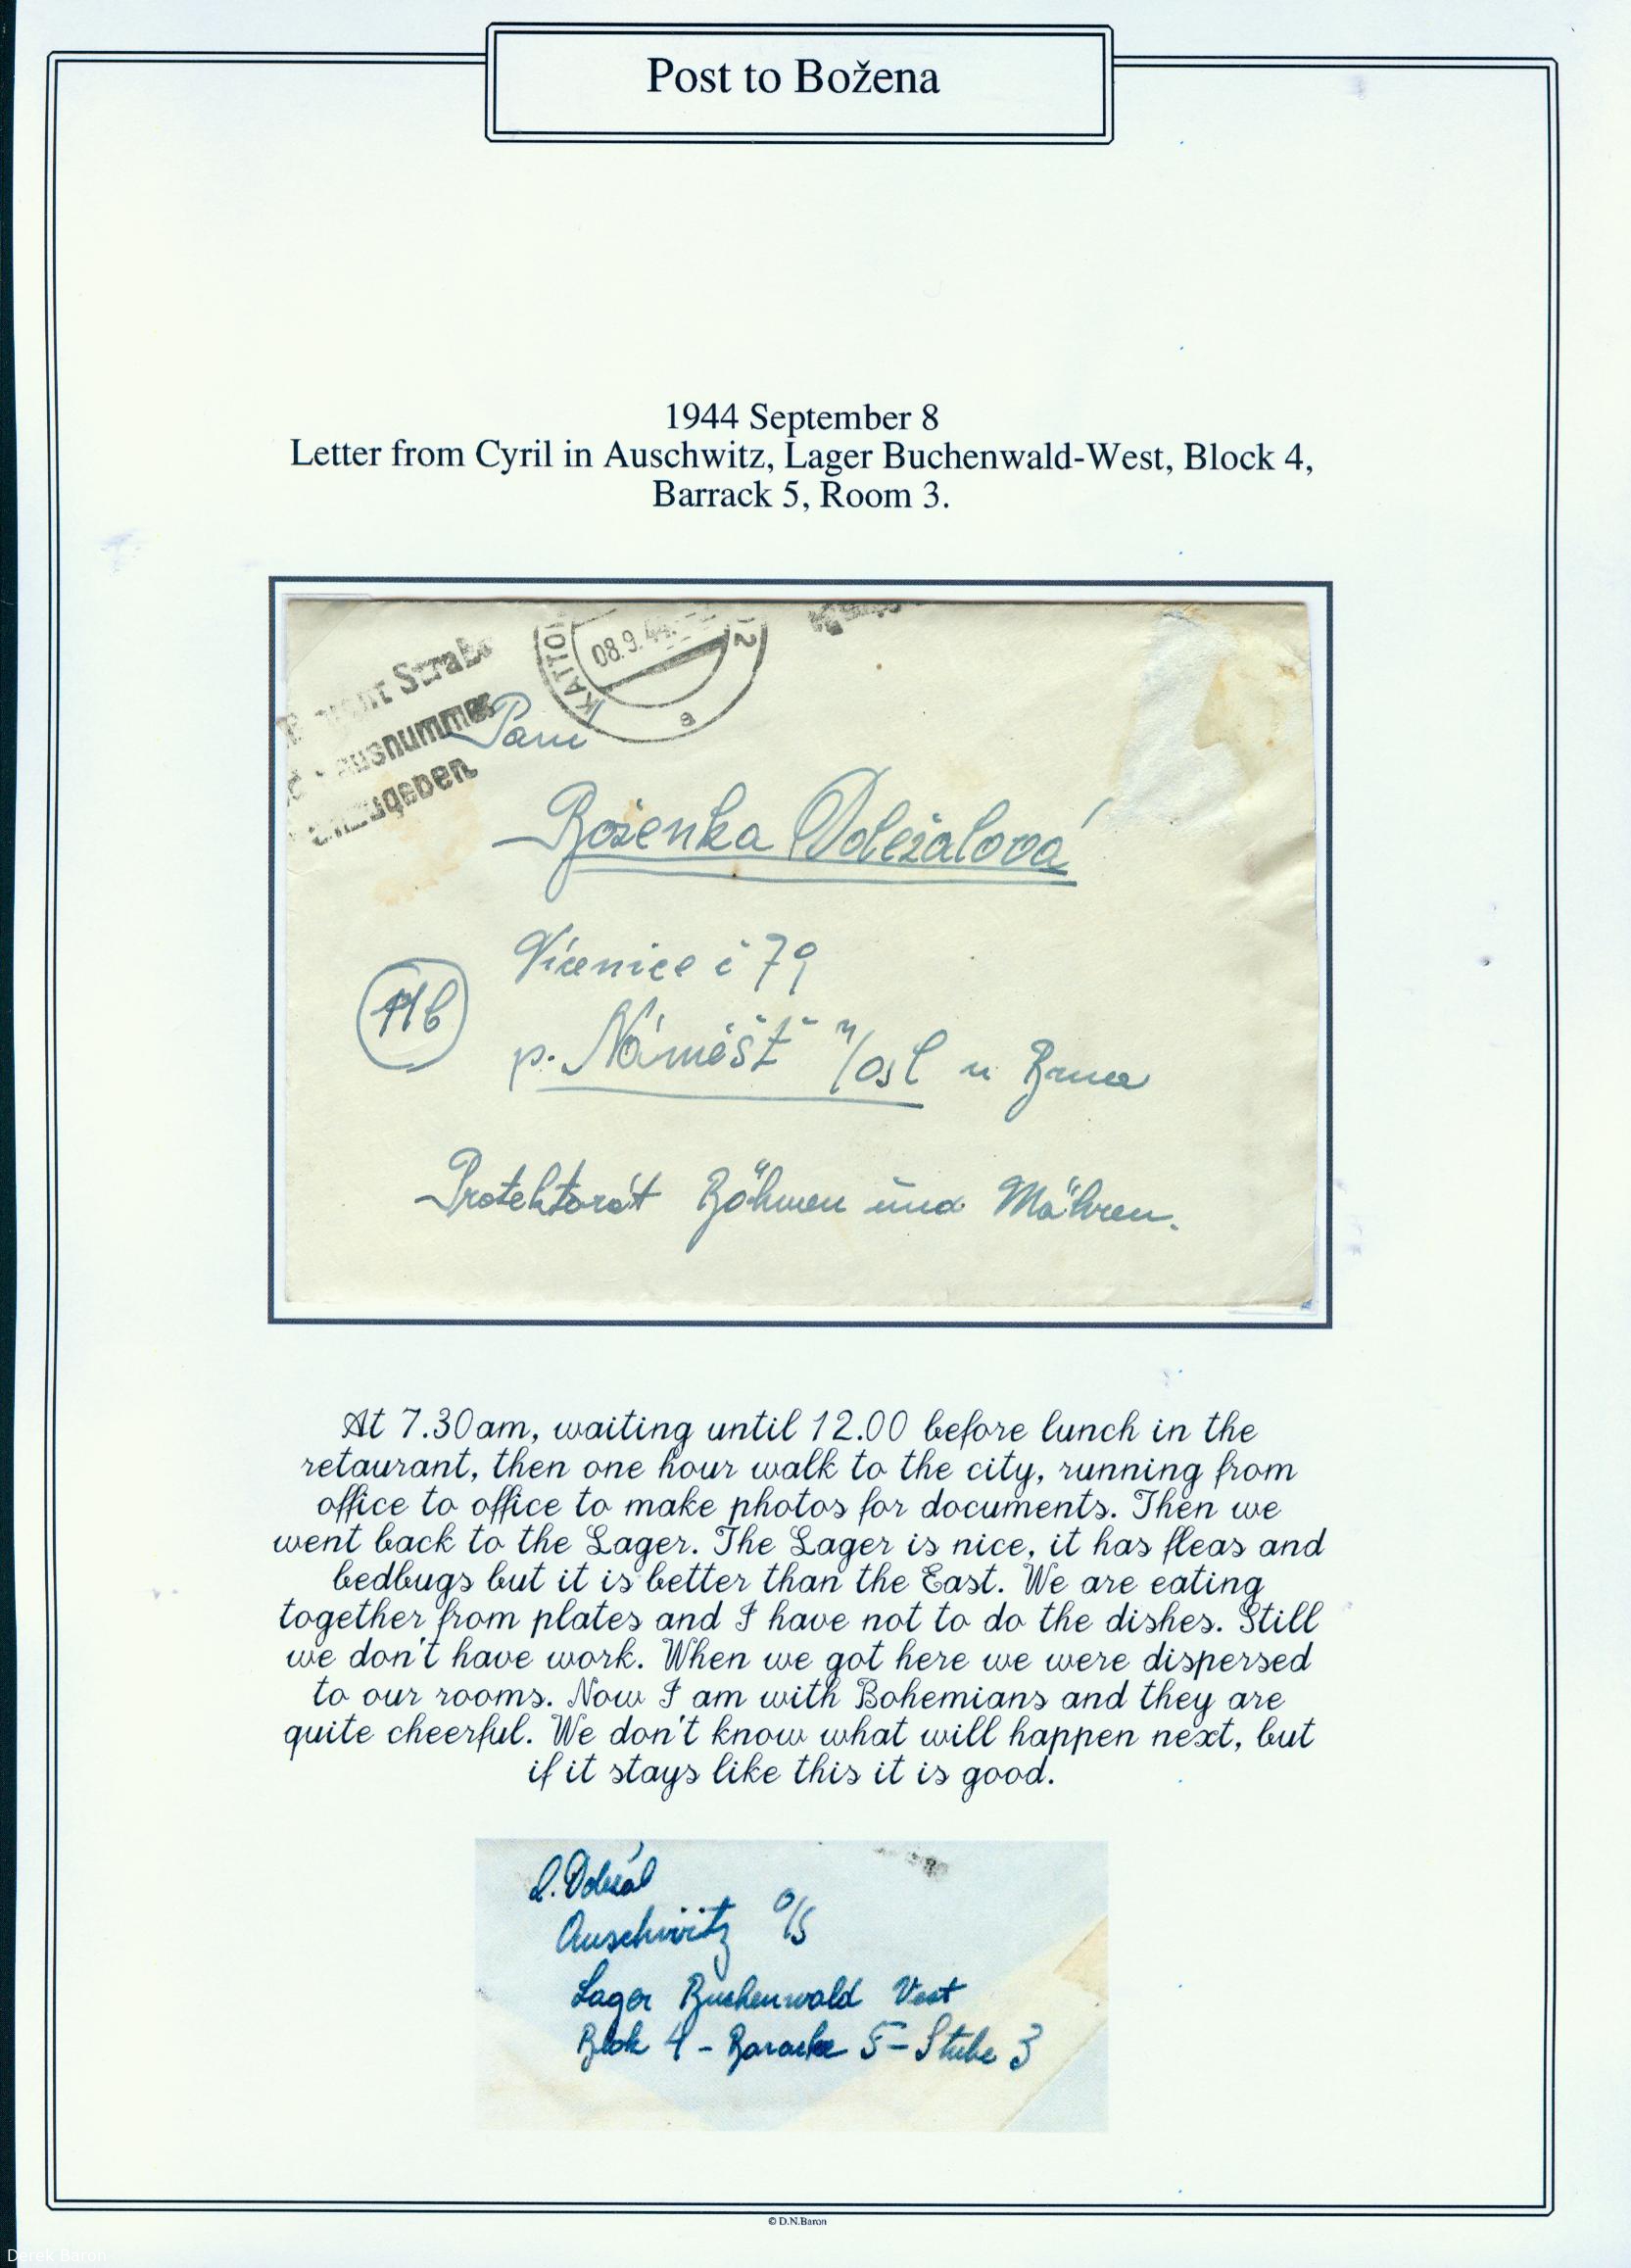 Post to Božena
1944 September 8
Letter from Cyril in Auschwitz, Lager Buchenwald-West, Block 4,
Barrack 5, Room 3.
Straße
08.9.44
Paní
Boženka Doležalová
Vícenice č 79
11b
p. Náměšť n/Osl u Brna
Protektorát Böhmen und Mähren.
At 7.30am, waiting until 12.00 before lunch in the
retaurant, then one hour walk to the city, running from
office to office to make photos for documents. Then we
went back to the Lager. The Lager is nice, it has fleas and
bedbugs but it is better than the East. We are eating
together from plates and I have not to do the dishes. Still
we don't have work. When we got here we were dispersed
to our rooms. Now I am with Bohemians and they are
quite cheerful. We don't know what will happen next, but
if it stays like this it is good.
Doležal
Auschwitz O/S
Lager Buchenwald Vest
Blok 4 - Baracke 5 - Stube 3
© D.N.Baron
Derek Baron